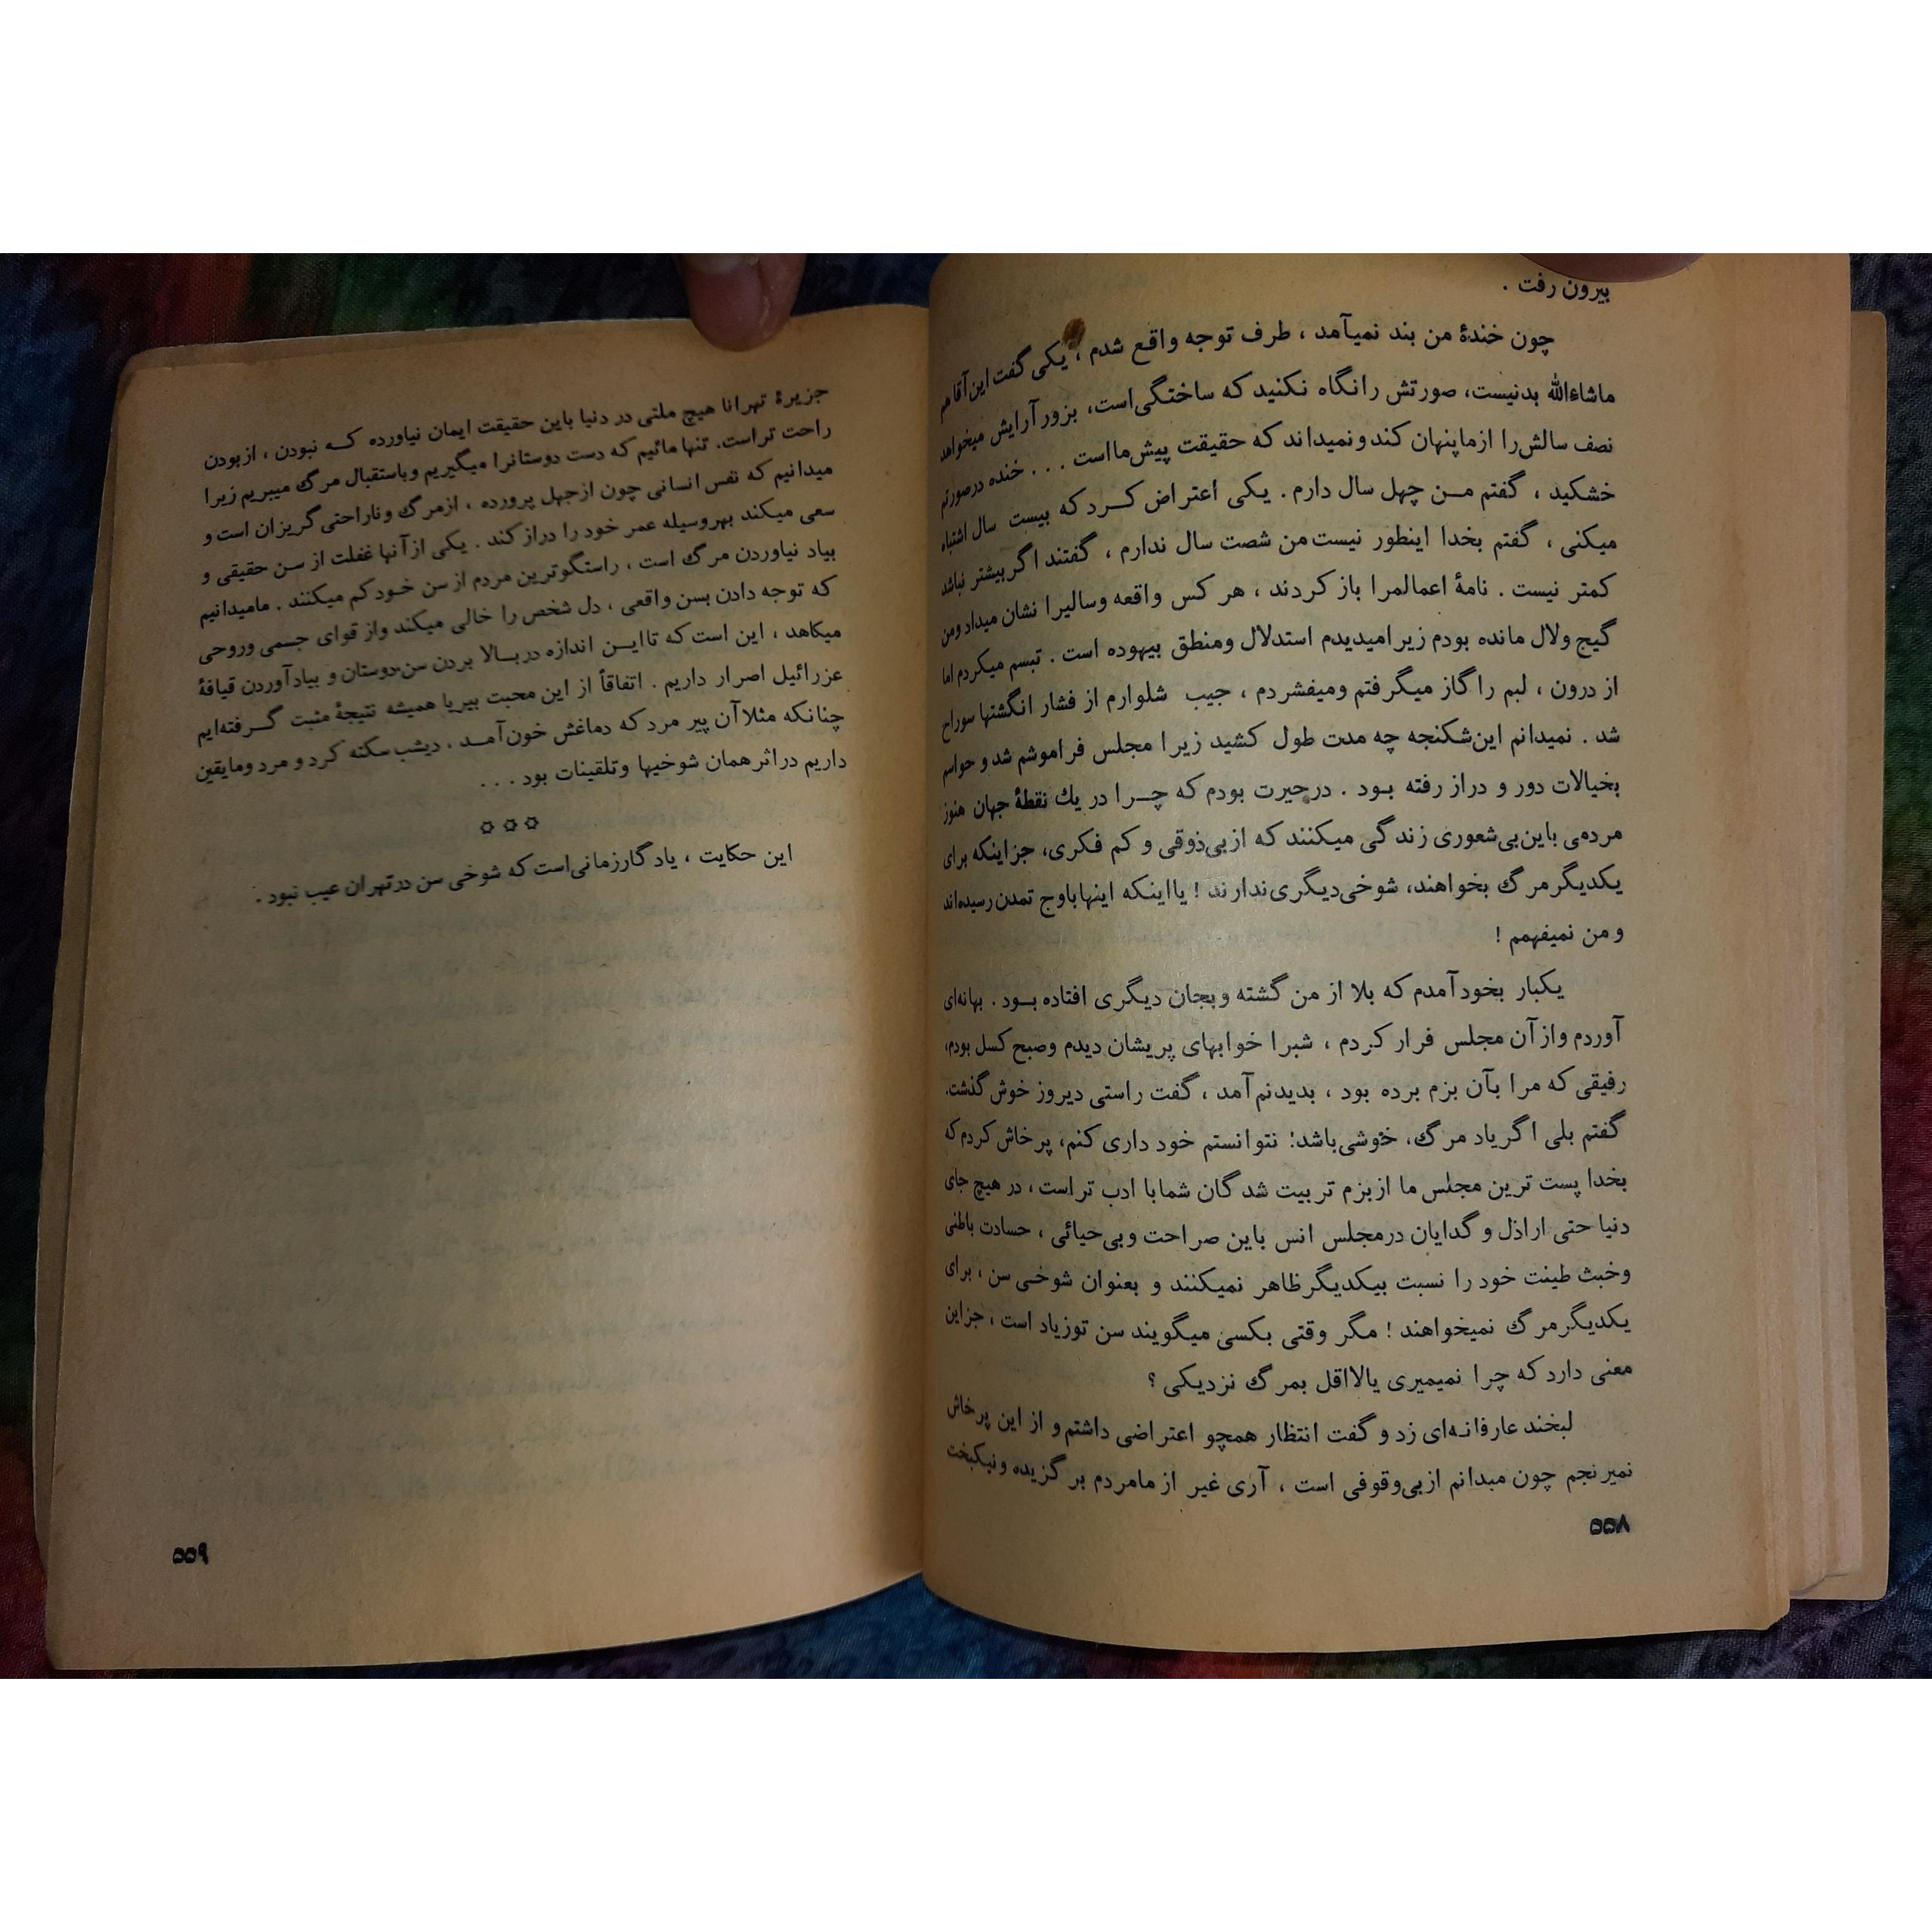 بیرون رفت .
چون خندهٔ من بند نمیآمد ، طرف توجه واقع شدم ، یکی گفت این آقا هم
ماشاءالله بدنیست، صورتش را نگاه نکنید که ساختگی‌است، بزور آرایش میخواهد
نصف سالش‌را ازما پنهان کند و نمیداند که حقیقت پیش‌ما است . . . خنده درصورتم
خشکید ، گفتم مـن چهل سال دارم . یکی اعتراض کـرد که بیست سال اشتباه
میکنی ، گفتم بخدا اینطور نیست من شصت سال ندارم ، گفتند اگر بیشتر نباشد
کمتر نیست . نامهٔ اعمالمرا باز کردند ، هر کس واقعه وسالیرا نشان میداد ومن
گیج ولال مانده بودم زیرا میدیدم استدلال ومنطق بیهوده است . تبسم میکردم اما
از درون ، لبم را گاز میگرفتم ومیفشردم ، جیب شلوارم از فشار انگشتها سوراخ
شد . نمیدانم این‌شکنجه چه مدت طول کشید زیرا مجلس فراموشم شد و حواسم
بخیالات دور و دراز رفته بـود . درحیرت بودم که چـرا در یك نقطهٔ جهان هنوز
مردمی باین‌بی‌شعوری زندگی میکنند که ازبی‌ذوقی و کم فکری، جزاینکه برای
یکدیگر مرگ بخواهند، شوخی‌دیگری‌ندارند ! یااینکه اینها باوج تمدن رسیده‌اند
و من نمیفهمم !
یکبار بخود آمدم که بلا از من گشته وبجان دیگری افتاده بـود . بهانه‌ای
آوردم وازآن مجلس فرار کردم ، شبرا خوابهای پریشان دیدم وصبح کسل بودم،
رفیقی که مرا بآن بزم برده بود ، بدیدنم آمد ، گفت راستی دیروز خوش گذشت.
گفتم بلی اگر یاد مرگ، خوشی‌باشد! نتوانستم خود داری کنم، پرخاش کردم که
بخدا پست ترین مجلس ما ازبزم تربیت شدگان شما با ادب تراست ، در هیچ جای
دنیا حتی اراذل و گدایان درمجلس انس باین صراحت وبی‌حیائی ، حسادت باطنی
وخبث طینت خود را نسبت بیکدیگر ظاهر نمیکنند و بعنوان شوخـی سن ، برای
یکدیگر مرگ نمیخواهند ! مگر وقتی بکسی میگویند سن توزیاد است ، جزاین
معنی دارد که چرا نمیمیری یالااقل بمرگ نزدیکی ؟
لبخند عارفانـه‌ای زد و گفت انتظار همچو اعتراضی داشتم و از این پرخاش
نمیرنجم چون میدانم ازبی‌وقوفی است ، آری غیر از مامردم برگزیده ونیکبخت
۵۵۸
جزیرهٔ تهرانا هیچ ملتی در دنیا باین حقیقت ایمان نیاورده کـه نبودن ، ازبودن
راحت تراست. تنها مائیم که دست دوستانرا میگیریم وباستقبال مرگ میبریم زیرا
میدانیم که نفس انسانی چون ازجهل پرورده ، ازمرگ وناراحتی گریزان است و
سعی میکند بهروسیله عمر خود را دراز کند . یکی ازآنها غفلت از سـن حقیقی و
بیاد نیاوردن مرگ است ، راستگوترین مردم از سن خـود کم میکنند . مامیدانیم
که توجه دادن بسن واقعی ، دل شخص را خالی میکند واز قوای جـمی وروحی
میکاهد ، این است که تاایـن اندازه دربـالا بردن سن‌دوستان و بیادآوردن قیافهٔ
عزرائیل اصرار داریم . اتفاقاً از این محبت بیریا همیشه نتیجهٔ مثبت گـرفته‌ایم
چنانکه مثلا آن پیر مرد که دماغش خون آمـد ، دیشب سکته کرد و مرد وما یقین
داریم دراثر همان شوخیها وتلقینات بود . . .
✡ ✡ ✡
این حکایت ، یادگارزمانی‌است که شوخی سن درتهران عیب نبود .
۵۵۹